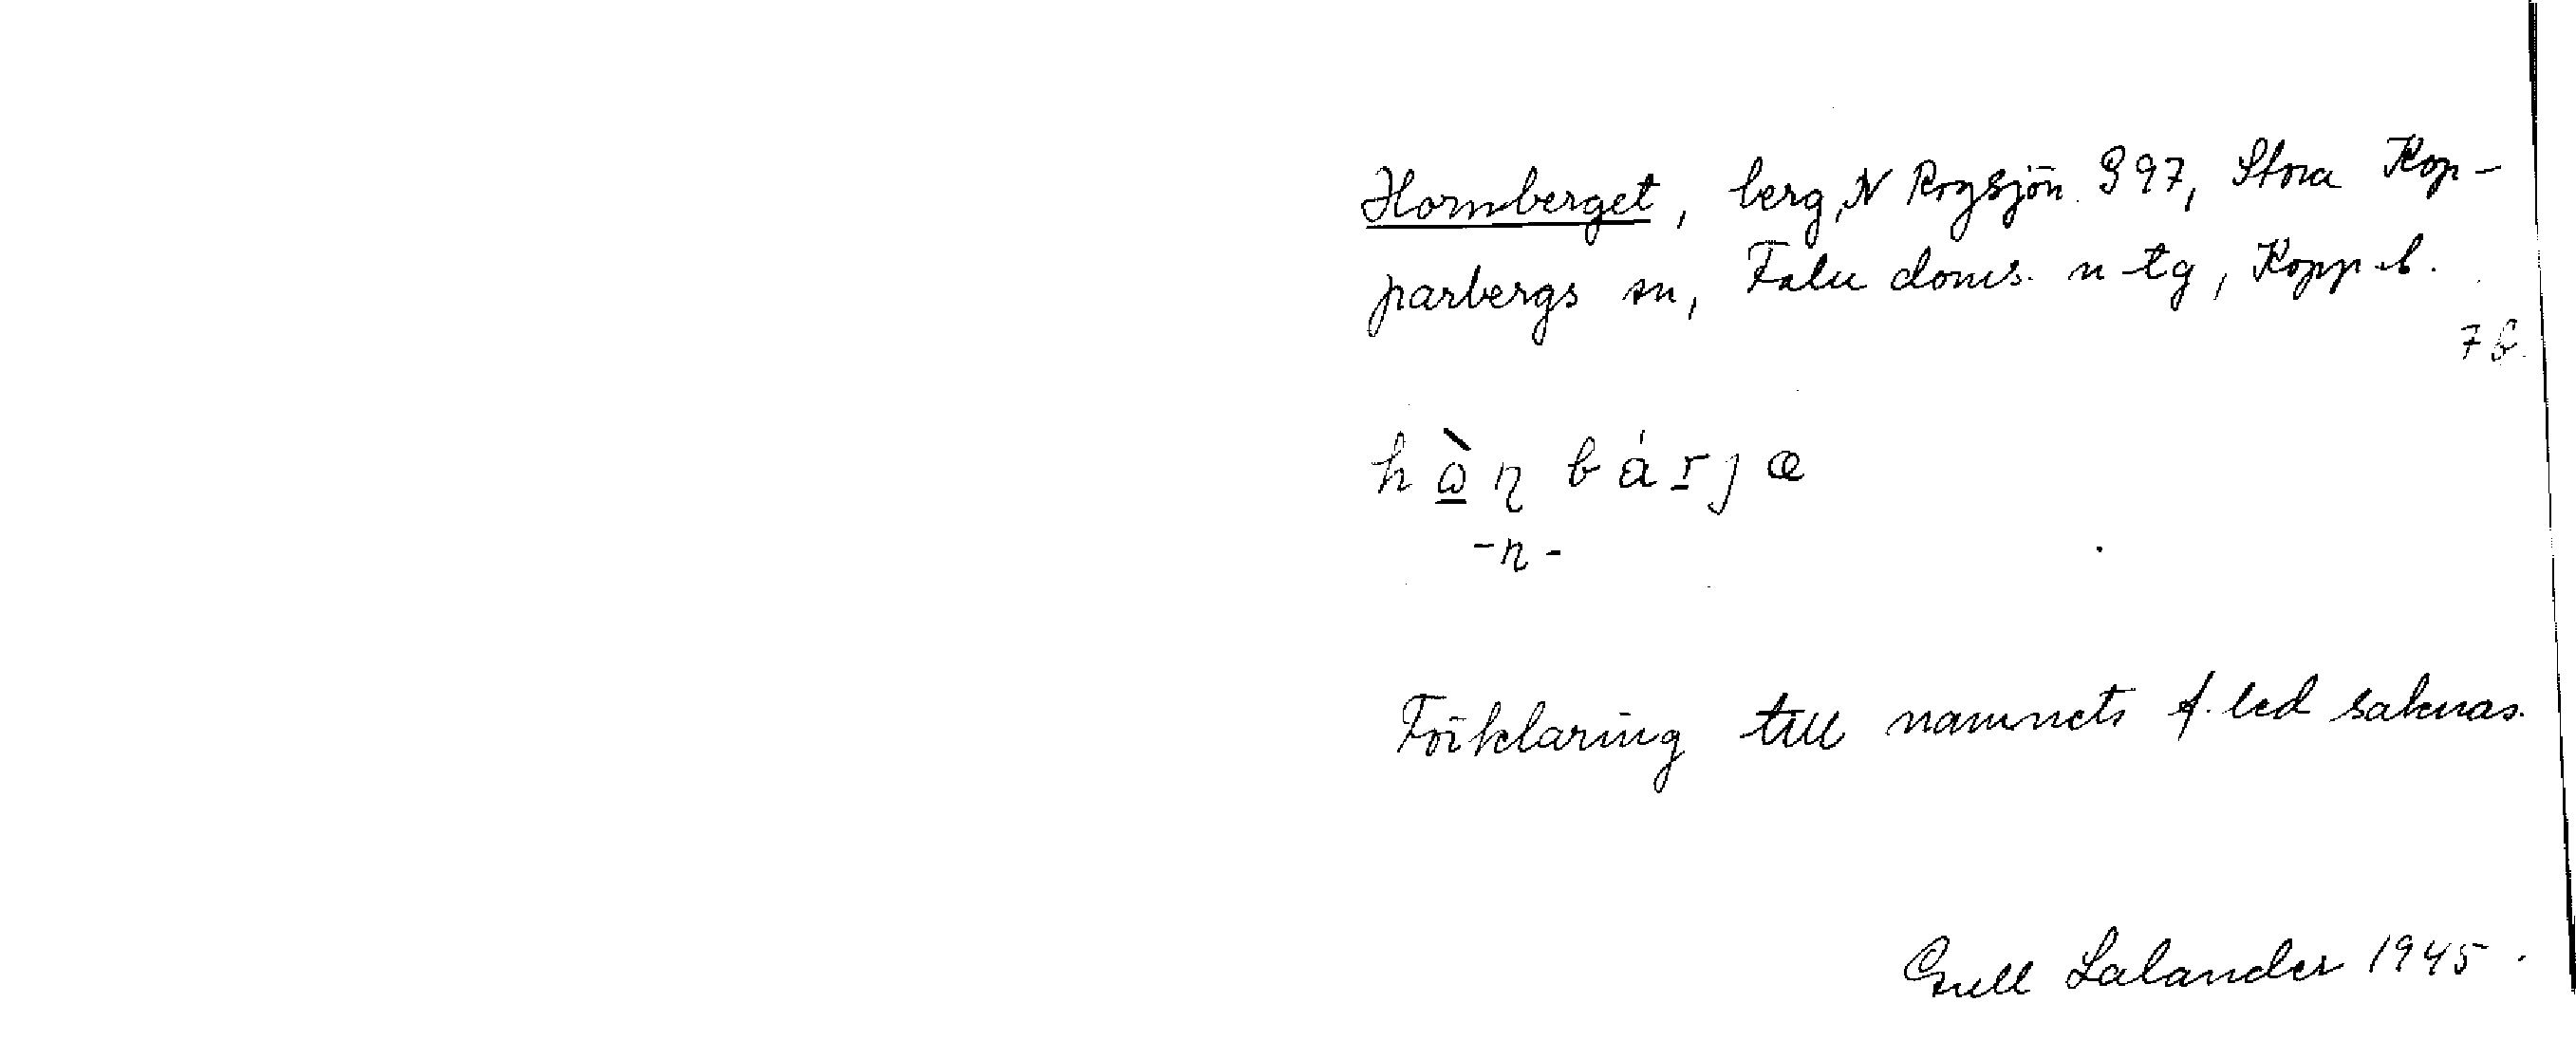 Hornberget, berg, N Rogsjön 397, Stora Kop-
parbergs sn, Falu doms. n tg, Kopp. l.
7 b.
h ὼ ɳ b á r j æ
-n-
Förklaring till namnets f. led saknas.
Gull Lalander 1945.